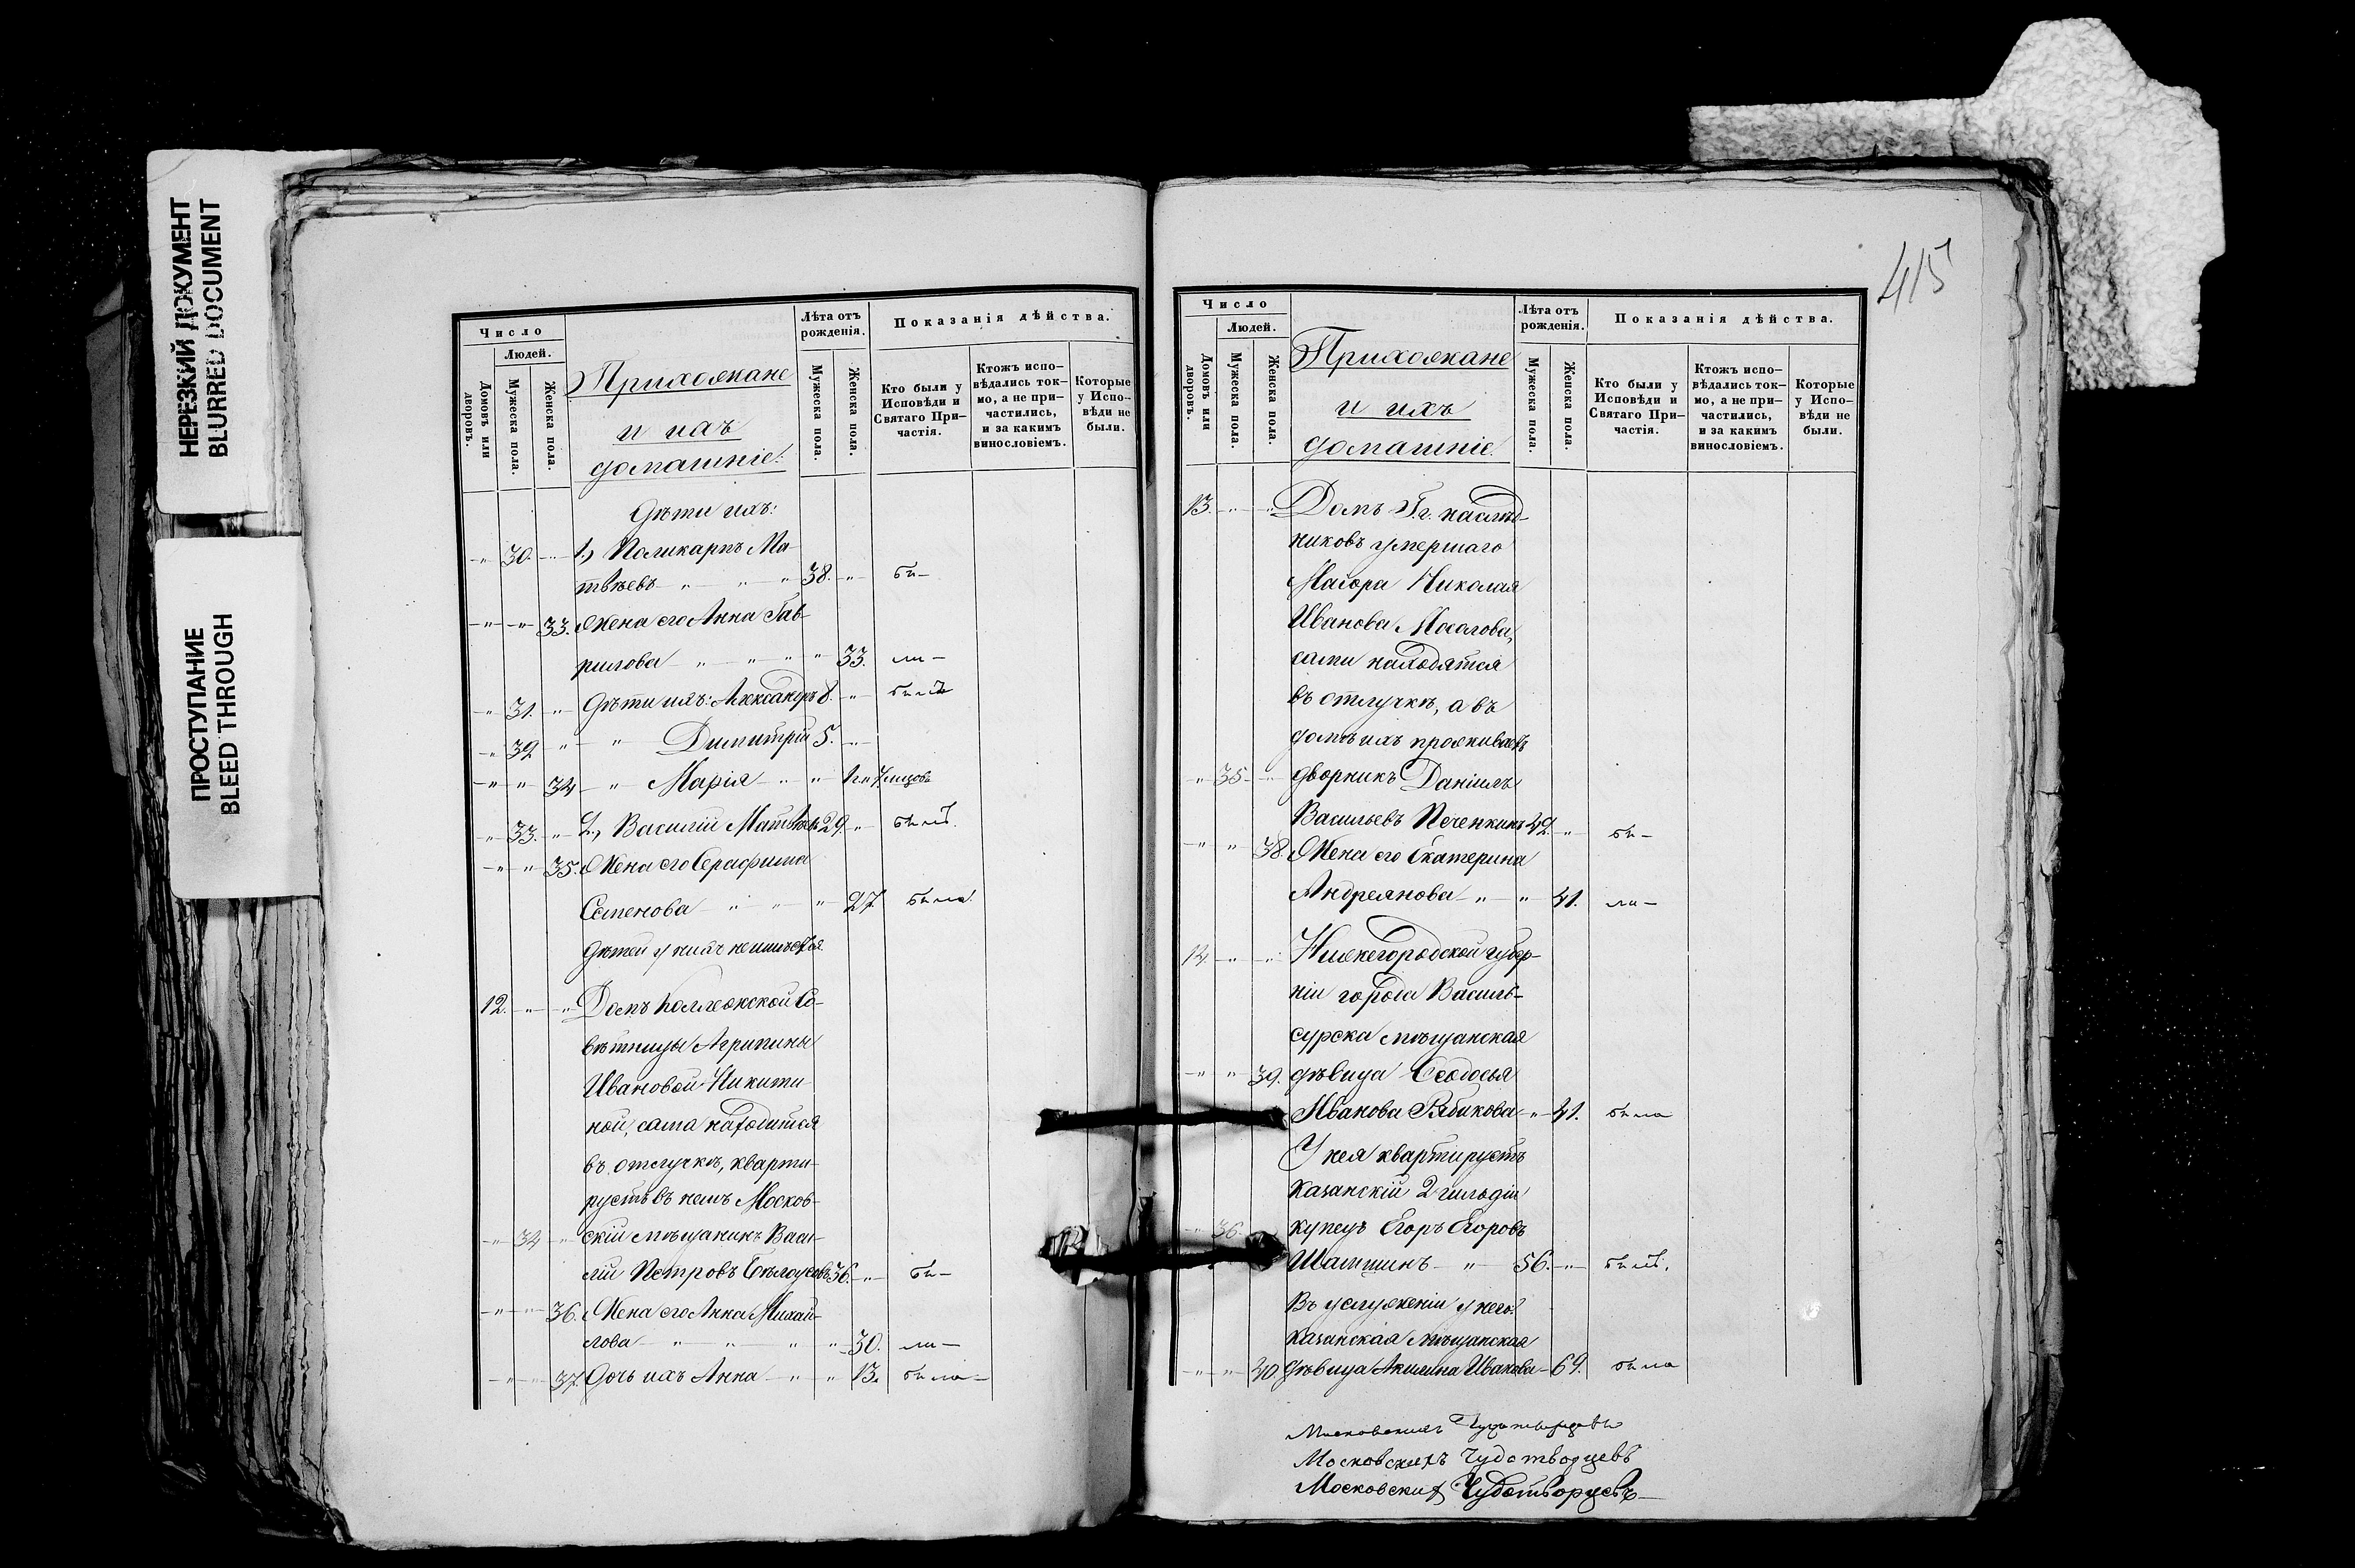 НЕРЕЗКИЙ ДОКУМЕНТ
BLURRED DOCUMENT
ПРОСТУПАНИЕ
BLEED THROUGH
Число
Людей.
Домовъ или дворовъ.
Мужеска пола.
Женска пола.
Прихожане
и ихъ
домашніе.
Лѣта отъ рожденія.
Мужеска пола.
Женска пола.
Показанія дѣйства.
Кто были у Исповѣди и Святаго При-частія.
Ктожъ испо-вѣдались ток-мо, а не при-частились, и за какимъ винословіемъ.
Которые у Испо-вѣди не были.
Дѣти ихъ:
-"- 30. -"- 1., Поликарпъ Ма-
твѣевъ -"- -"- -"- 38. -"- бы-
-"- -"- 33. Жена его Анна Гав-
рилова -"- -"- -"- -"- 33. ли-
-"- 31. -"- Дѣти ихъ: Александръ 8. -"- былъ
-"- 32 -"- -"- Димитрій 5. -"-
-"- -"- 34 -"- Марія -"- -"-
-"- 33. -"- 2., Василій Матвѣевъ 29. -"- былъ.
-"- -"- 35. Жена его Серафима
Семенова -"- -"- -"- 27. была.
Дѣтей у нихъ неимѣется
12. -"- -"- Домъ Коллежской Со-
вѣтницы Агрипины
Ивановой Никити-
ной, сама находится
въ отлучкѣ, кварти-
руетъ въ немъ Москов-
-"- 34 -"- скій мѣщанинъ Васи-
лій Петровъ Бѣлоусовъ 36. -"- бы-
-"- -"- 36. Жена его Анна Михай-
лова -"- -"- -"- -"- 30. ли-
-"- -"- 37. Дочь ихъ Анна -"- -"- 13. была-
415
Число
Людей.
Домовъ или дворовъ.
Мужеска пола.
Женска пола.
Прихожане
и ихъ
домашніе.
Лѣта отъ рожденія.
Мужеска пола.
Женска пола.
Показанія дѣйства.
Кто были у Исповѣди и Святаго При-частія.
Ктожъ испо-вѣдались ток-мо, а не при-частились, и за какимъ винословіемъ.
Которые у Испо-вѣди не были.
13. -"- -"- Домъ Г.г. наслѣд-
никовъ умершаго
Маіора Николая
Иванова Мосолова,
сами находятся
въ отлучкѣ, а въ
домѣ ихъ проживаетъ
-"- 35 -"- дворникъ Даніилъ
Васильевъ Печенкинъ 42. -"- бы-
-"- -"- 38. Жена его Екатерина
Андреянова -"- -"- 41. ли-
14 -"- -"- Нижегородской губер-
ніи города Василь-
сурска мѣщанская
-"- -"- 39. дѣвица Ѳеодосья
Иванова Рябикова -"- 41. была
У нея квартируетъ
Казанскій 2 гильдіи
-"- 36. купецъ Егоръ Егоровъ
Шамшинъ -"- 56. -"- былъ.
Въ услуженіи у него:
Казанская мѣщанская
-"- -"- 40. дѣвица Акилина Иванова - 69. была
Московскихъ Чудотворцевъ
Московскихъ Чудотворцевъ
Московских Чудотворцевъ